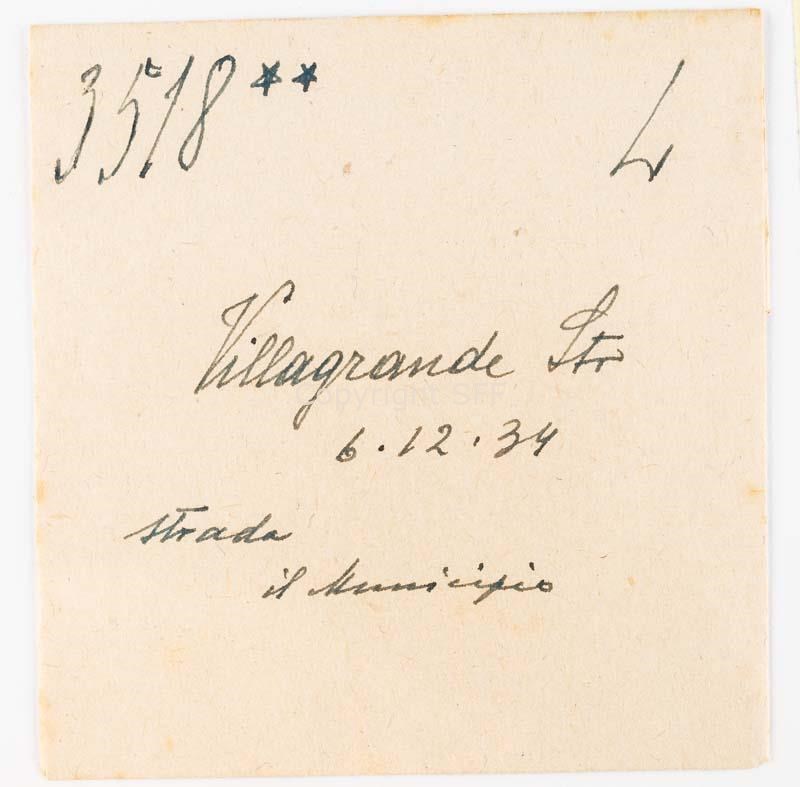 3518** L
Villagrande Str
Copyright SFF
6.12.34
strada
il Municipio